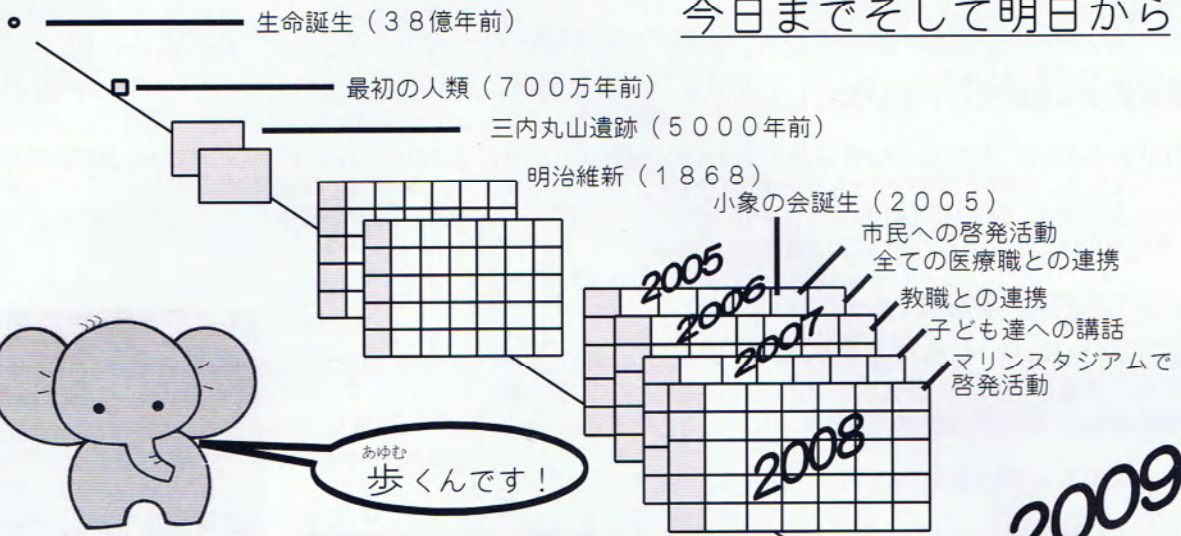 今日までそして明日から
生命誕生（38億年前）
最初の人類（700万年前）
三内丸山遺跡（5000年前）
明治維新（1868）
小象の会誕生（2005）
市民への啓発活動
全ての医療職との連携
教職との連携
子ども達への講話
マリンスタジアムで
啓発活動
2005
2006
2007
2008
2009
あゆむ
歩くんです！